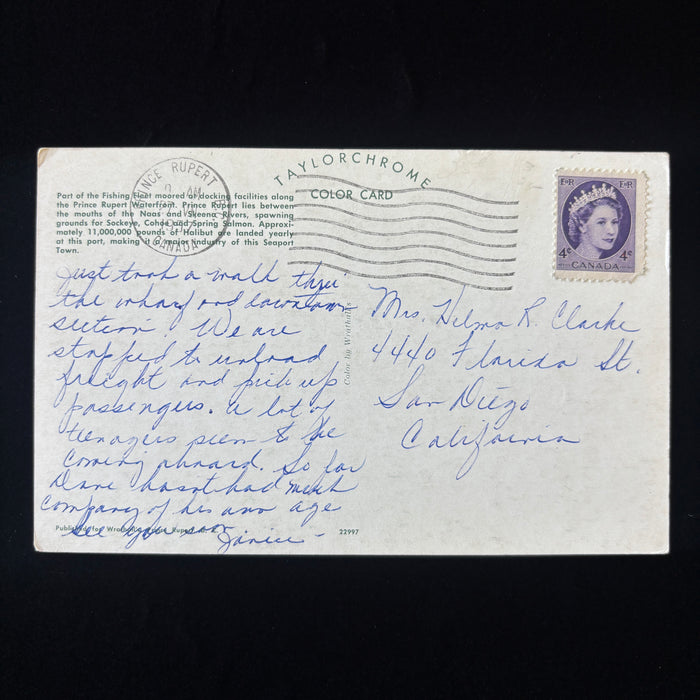 PRINCE RUPERT
AM
CANADA
TAYLORCHROME
COLOR CARD
Part of the Fishing Fleet moored at docking facilities along
the Prince Rupert Waterfront. Prince Rupert lies between
the mouths of the Naas and Skeena Rivers, spawning
grounds for Sockeye, Cohoe and Spring Salmon. Approxi-
mately 11,000,000 pounds of Halibut are landed yearly
at this port, making it a major industry of this Seaport
Town.
E·R E·R
4c 4c
CANADA
Just took a walk thru
the wharf and downtown
section. We are
stopped to unload
freight and pick up
passengers. A lot of
teenagers seem to be
coming aboard. So far
Dave hasn't had much
company of his own age
See you soon
Janice -
Color by Wrathall's
Mrs. Hilma R. Clarke
4440 Florida St.
San Diego
California
Published for Wrathall's Prince Rupert
22997